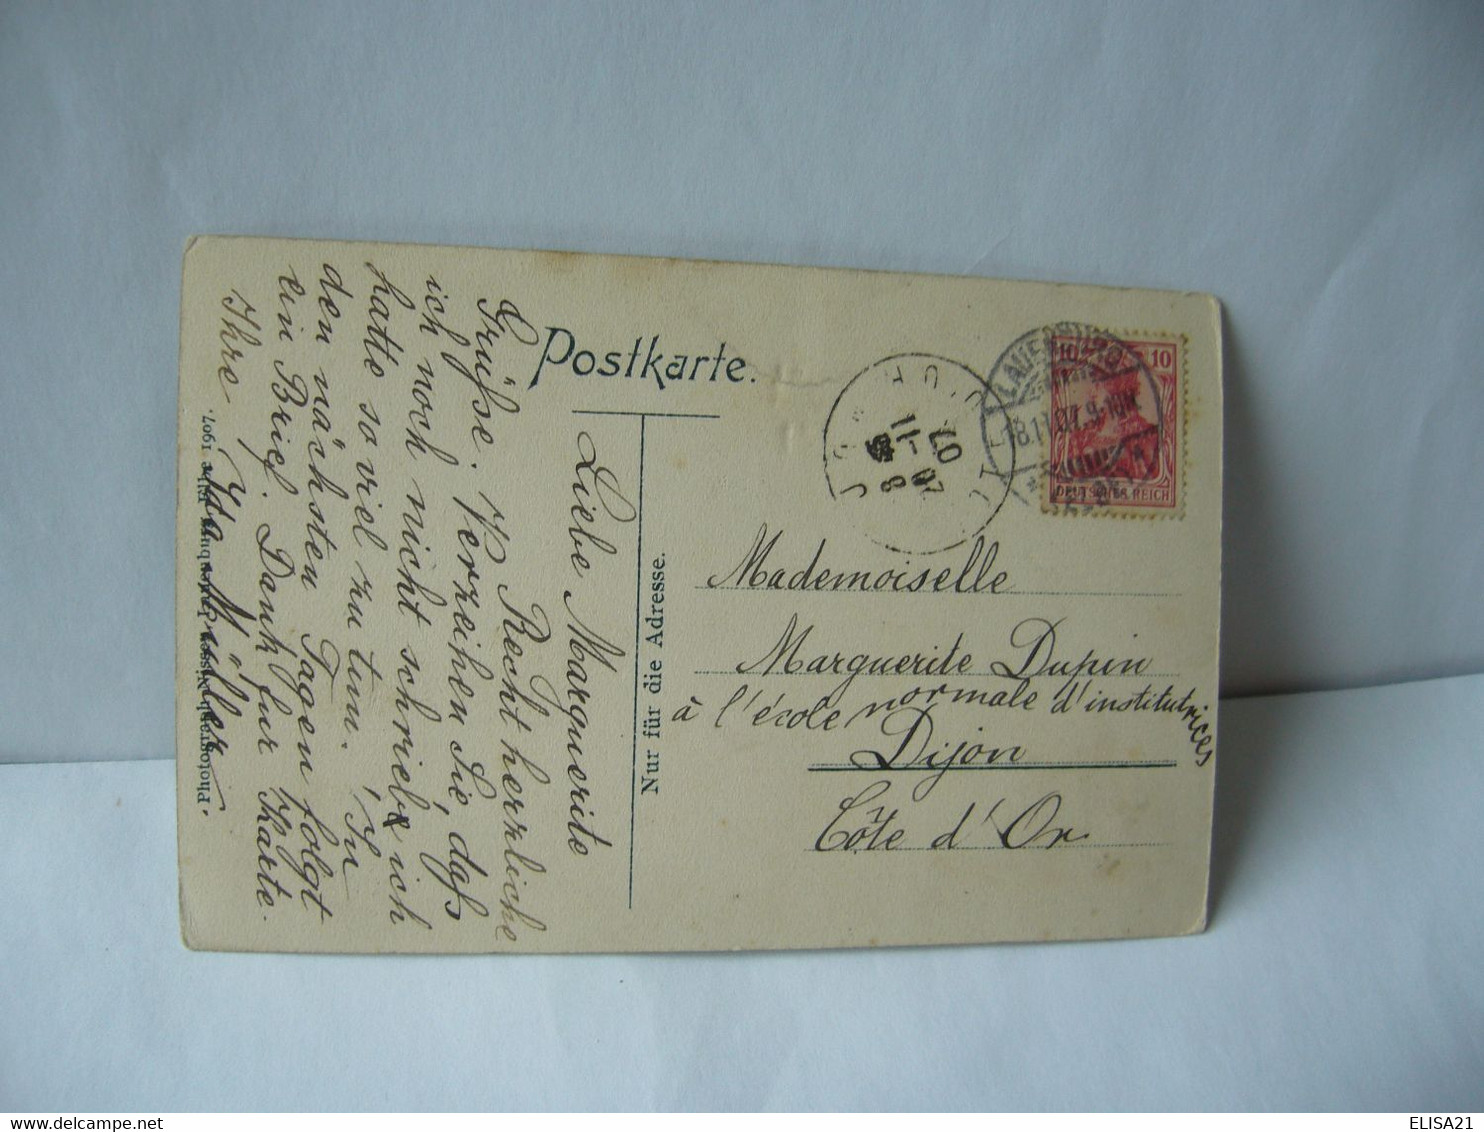 Postkarte.
Nur für die Adresse.
10
10
DEUTSCHES REICH
LAUENBURG
18.11.07. 9-10
DIJON
8
-11
07
Mademoiselle
Marguerite Dupin
à l'école normale d'institutrices
Dijon
Côte d'Or
Liebe Marguerite
Recht herzliche
Grüße. Verzeihen Sie, daß
ich noch nicht schrieb, ich
hatte so viel zu tun. In
den nächsten Tagen folgt
ein Brief. Dank für Karte.
Ihre
Müller.
1907.
ELISA21